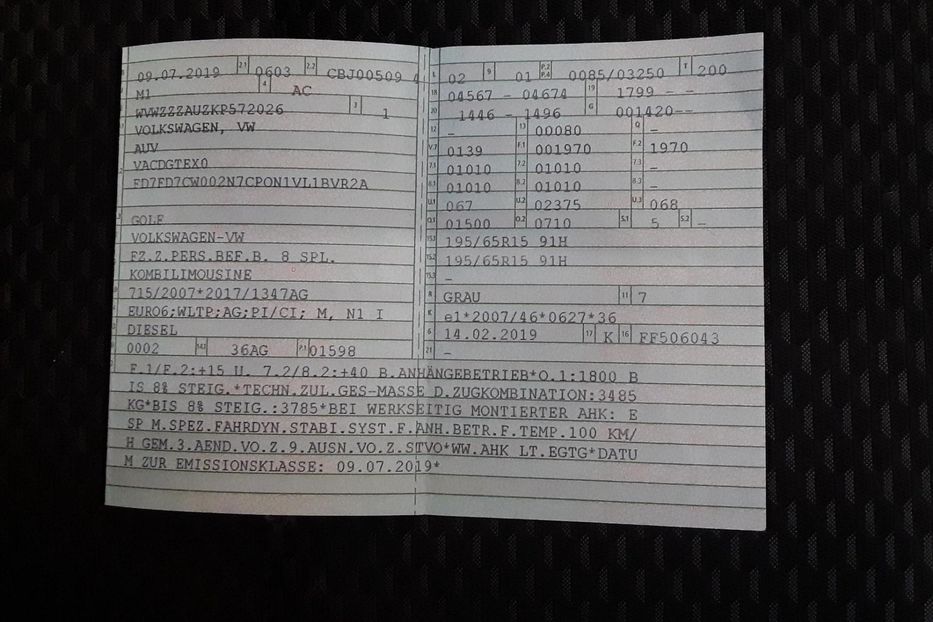 B 09.07.2019 2.1 0603 2.2 CBJ00509 4
J M1 4 AC
E WVWZZZAUZKP572026 3 1
D.1 VOLKSWAGEN, VW
AUV
VACDGTEX0
FD7FD7CW002N7CPON1VL1BVR2A
D.3 GOLF
VOLKSWAGEN-VW
FZ.Z.PERS.BEF.B. 8 SPL.
KOMBILIMOUSINE
715/2007*2017/1347AG
EURO6;WLTP;AG;PI/CI; M, N1 I
DIESEL
0002 14.1 36AG P.1 01598
L 02 9 01 P.2 P.4 0085/03250 T 200
18 04567 - 04674 19 1799 - -
20 1446 - 1496 G 001420--
12 - 13 00080 Q -
V.7 0139 F.1 001970 F.2 1970
7.1 01010 7.2 01010 7.3 -
8.1 01010 8.2 01010 8.3 -
U.1 067 U.2 02375 U.3 068
O.1 01500 O.2 0710 S.1 5 S.2 -
15.1 195/65R15 91H
15.2 195/65R15 91H
15.3 -
R GRAU 11 7
K e1*2007/46*0627*36
6 14.02.2019 17 K 16 FF506043
21 -
F.1/F.2:+15 U. 7.2/8.2:+40 B.ANHÄNGEBETRIEB*O.1:1800 B
IS 8% STEIG.*TECHN.ZUL.GES-MASSE D.ZUGKOMBINATION:3485
KG*BIS 8% STEIG.:3785*BEI WERKSEITIG MONTIERTER AHK: E
SP M.SPEZ.FAHRDYN.STABI.SYST.F.ANH.BETR.F.TEMP.100 KM/
H GEM.3.AEND.VO.Z.9.AUSN.VO.Z.STVO*WW.AHK LT.EGTG*DATU
M ZUR EMISSIONSKLASSE: 09.07.2019*